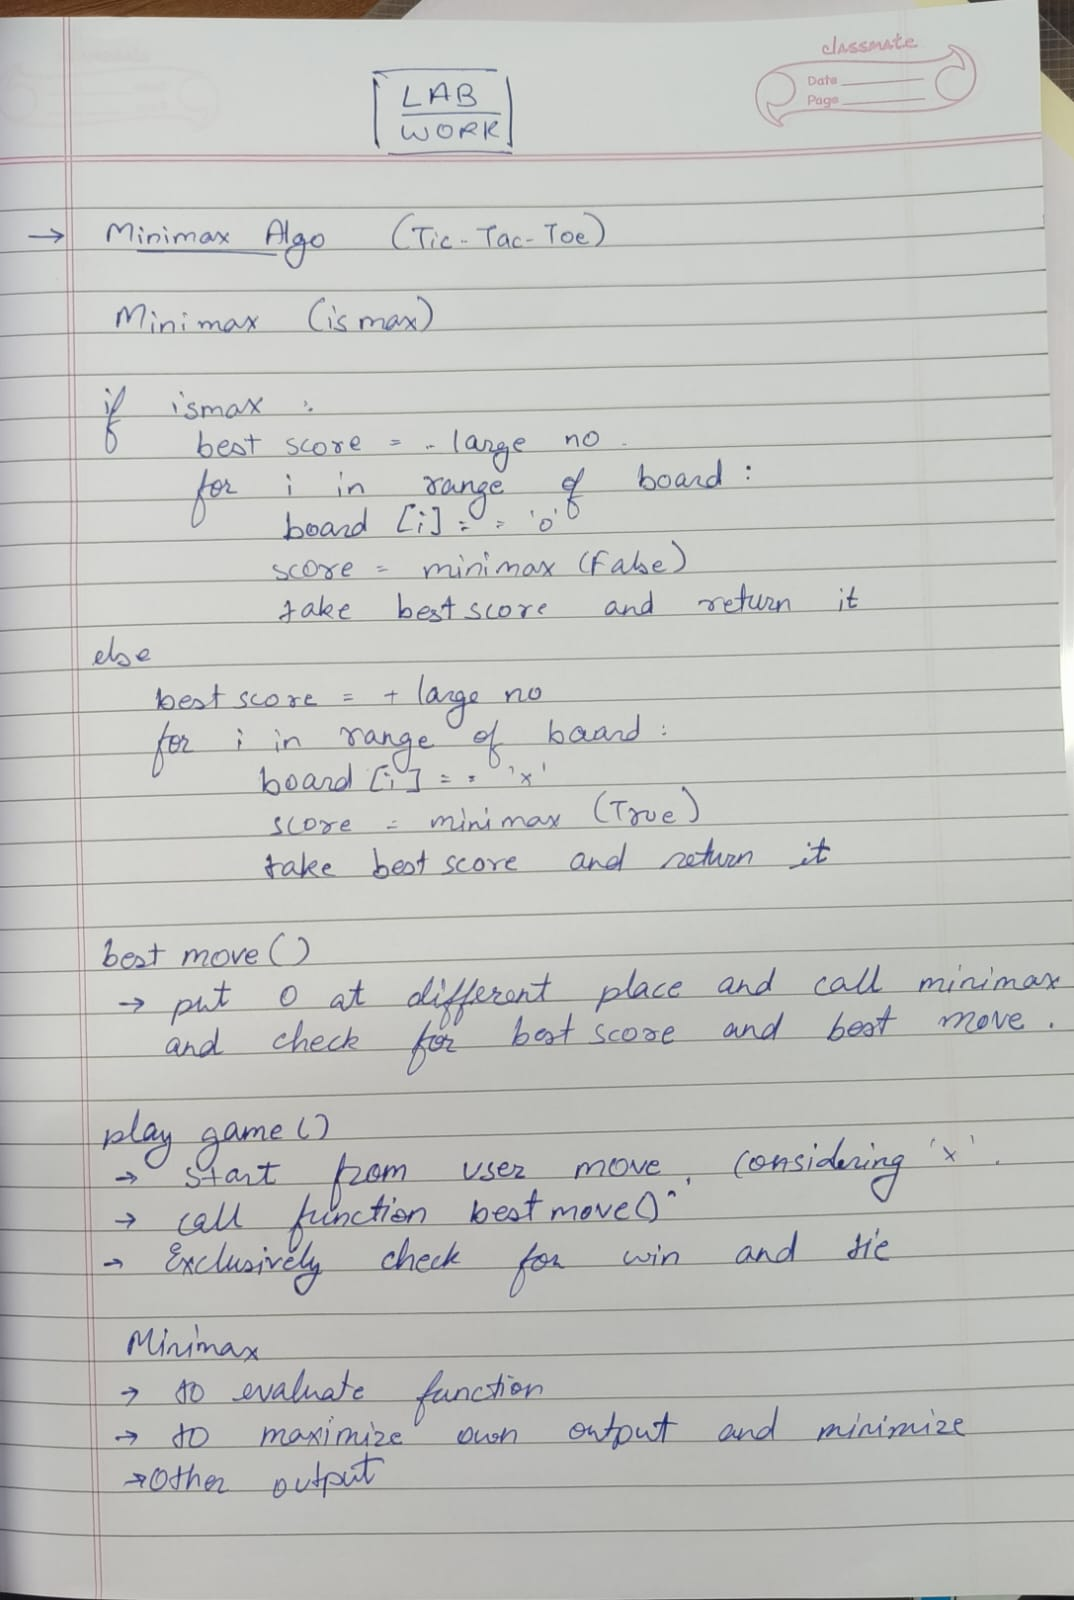 classmate
Date
Page
LAB
WORK
→ Minimax Algo (Tic-Tac-Toe)
Minimax (is max)
if ismax :
best score = - large no.
for i in range of board :
board [i] = = 'o'
score = minimax (False)
take best score and return it
else
best score = + large no
for i in range of board :
board [i] = = 'x'
score = minimax (True)
take best score and return it
best move ()
→ put O at different place and call minimax
and check for best score and best move.
play game ()
→ start from user move, considering 'x'.
→ call function best move ()
→ Exclusively check for win and tie
Minimax
→ to evaluate function
→ to maximize own output and minimize
→ Other output